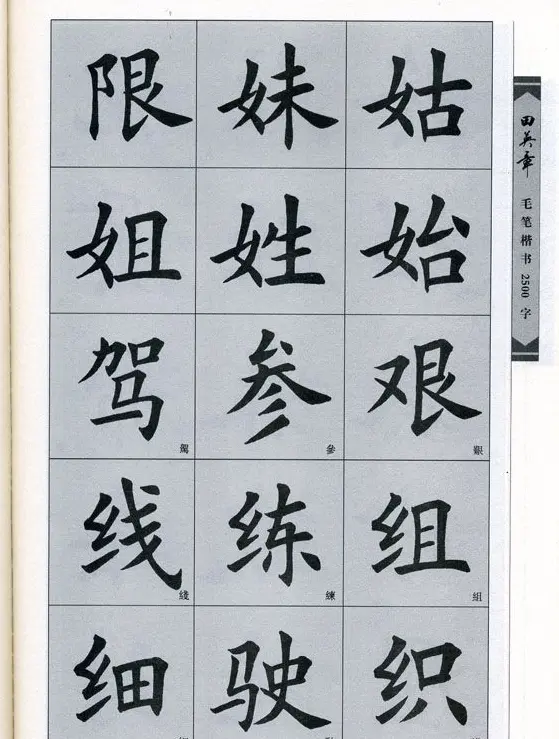 限 妹 姑
姐 姓 始
驾 参 艰
駕 參 艱
线 练 组
綫 練 組
细 驶 织
田英章 毛笔楷书2500字